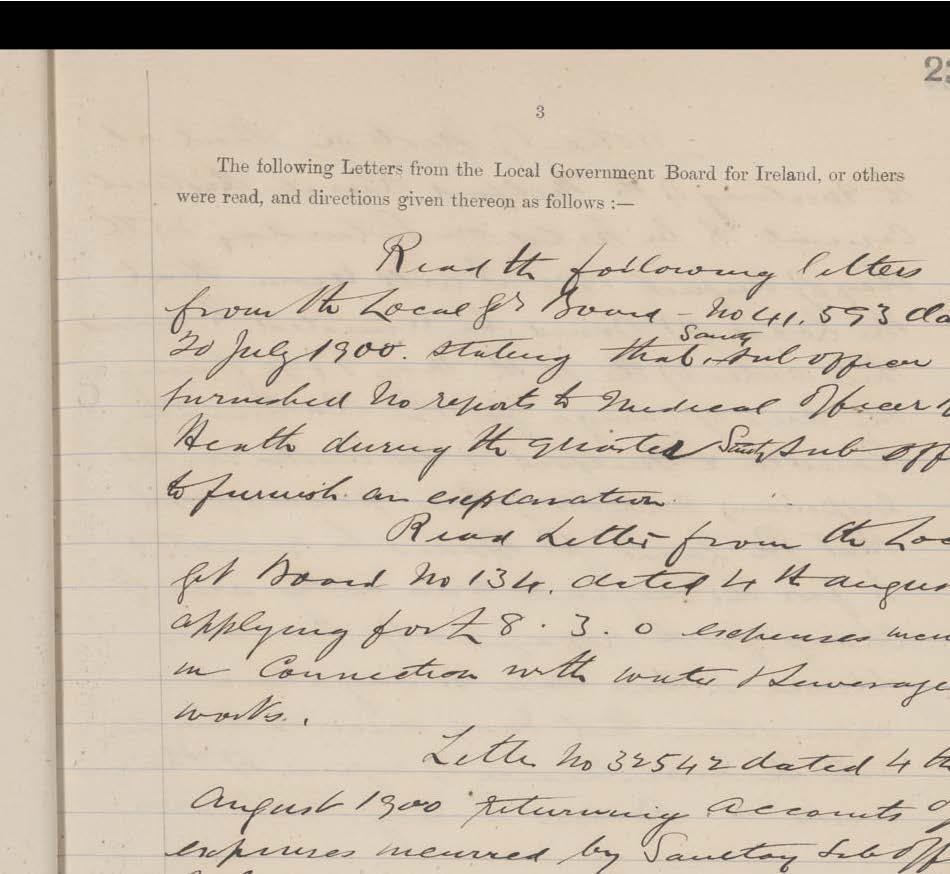 3
The following Letters from the Local Government Board for Ireland, or others
were read, and directions given thereon as follows :—
Read the following letters
from the Local Gt Board - No 41,593
20 July 1900. stating that Sanity Sub officer
furnished No reports to Medical Officer
Health during the quarter Sanity Sub
to furnish an explanation
Read Letter from the
Board No 134. dated 4th
applying for £8. 3. 0 expenses
in Connection with water Sewerage
works.
Letter No 32542 dated 4
August 1900 returning accounts
expenses incurred by Sub